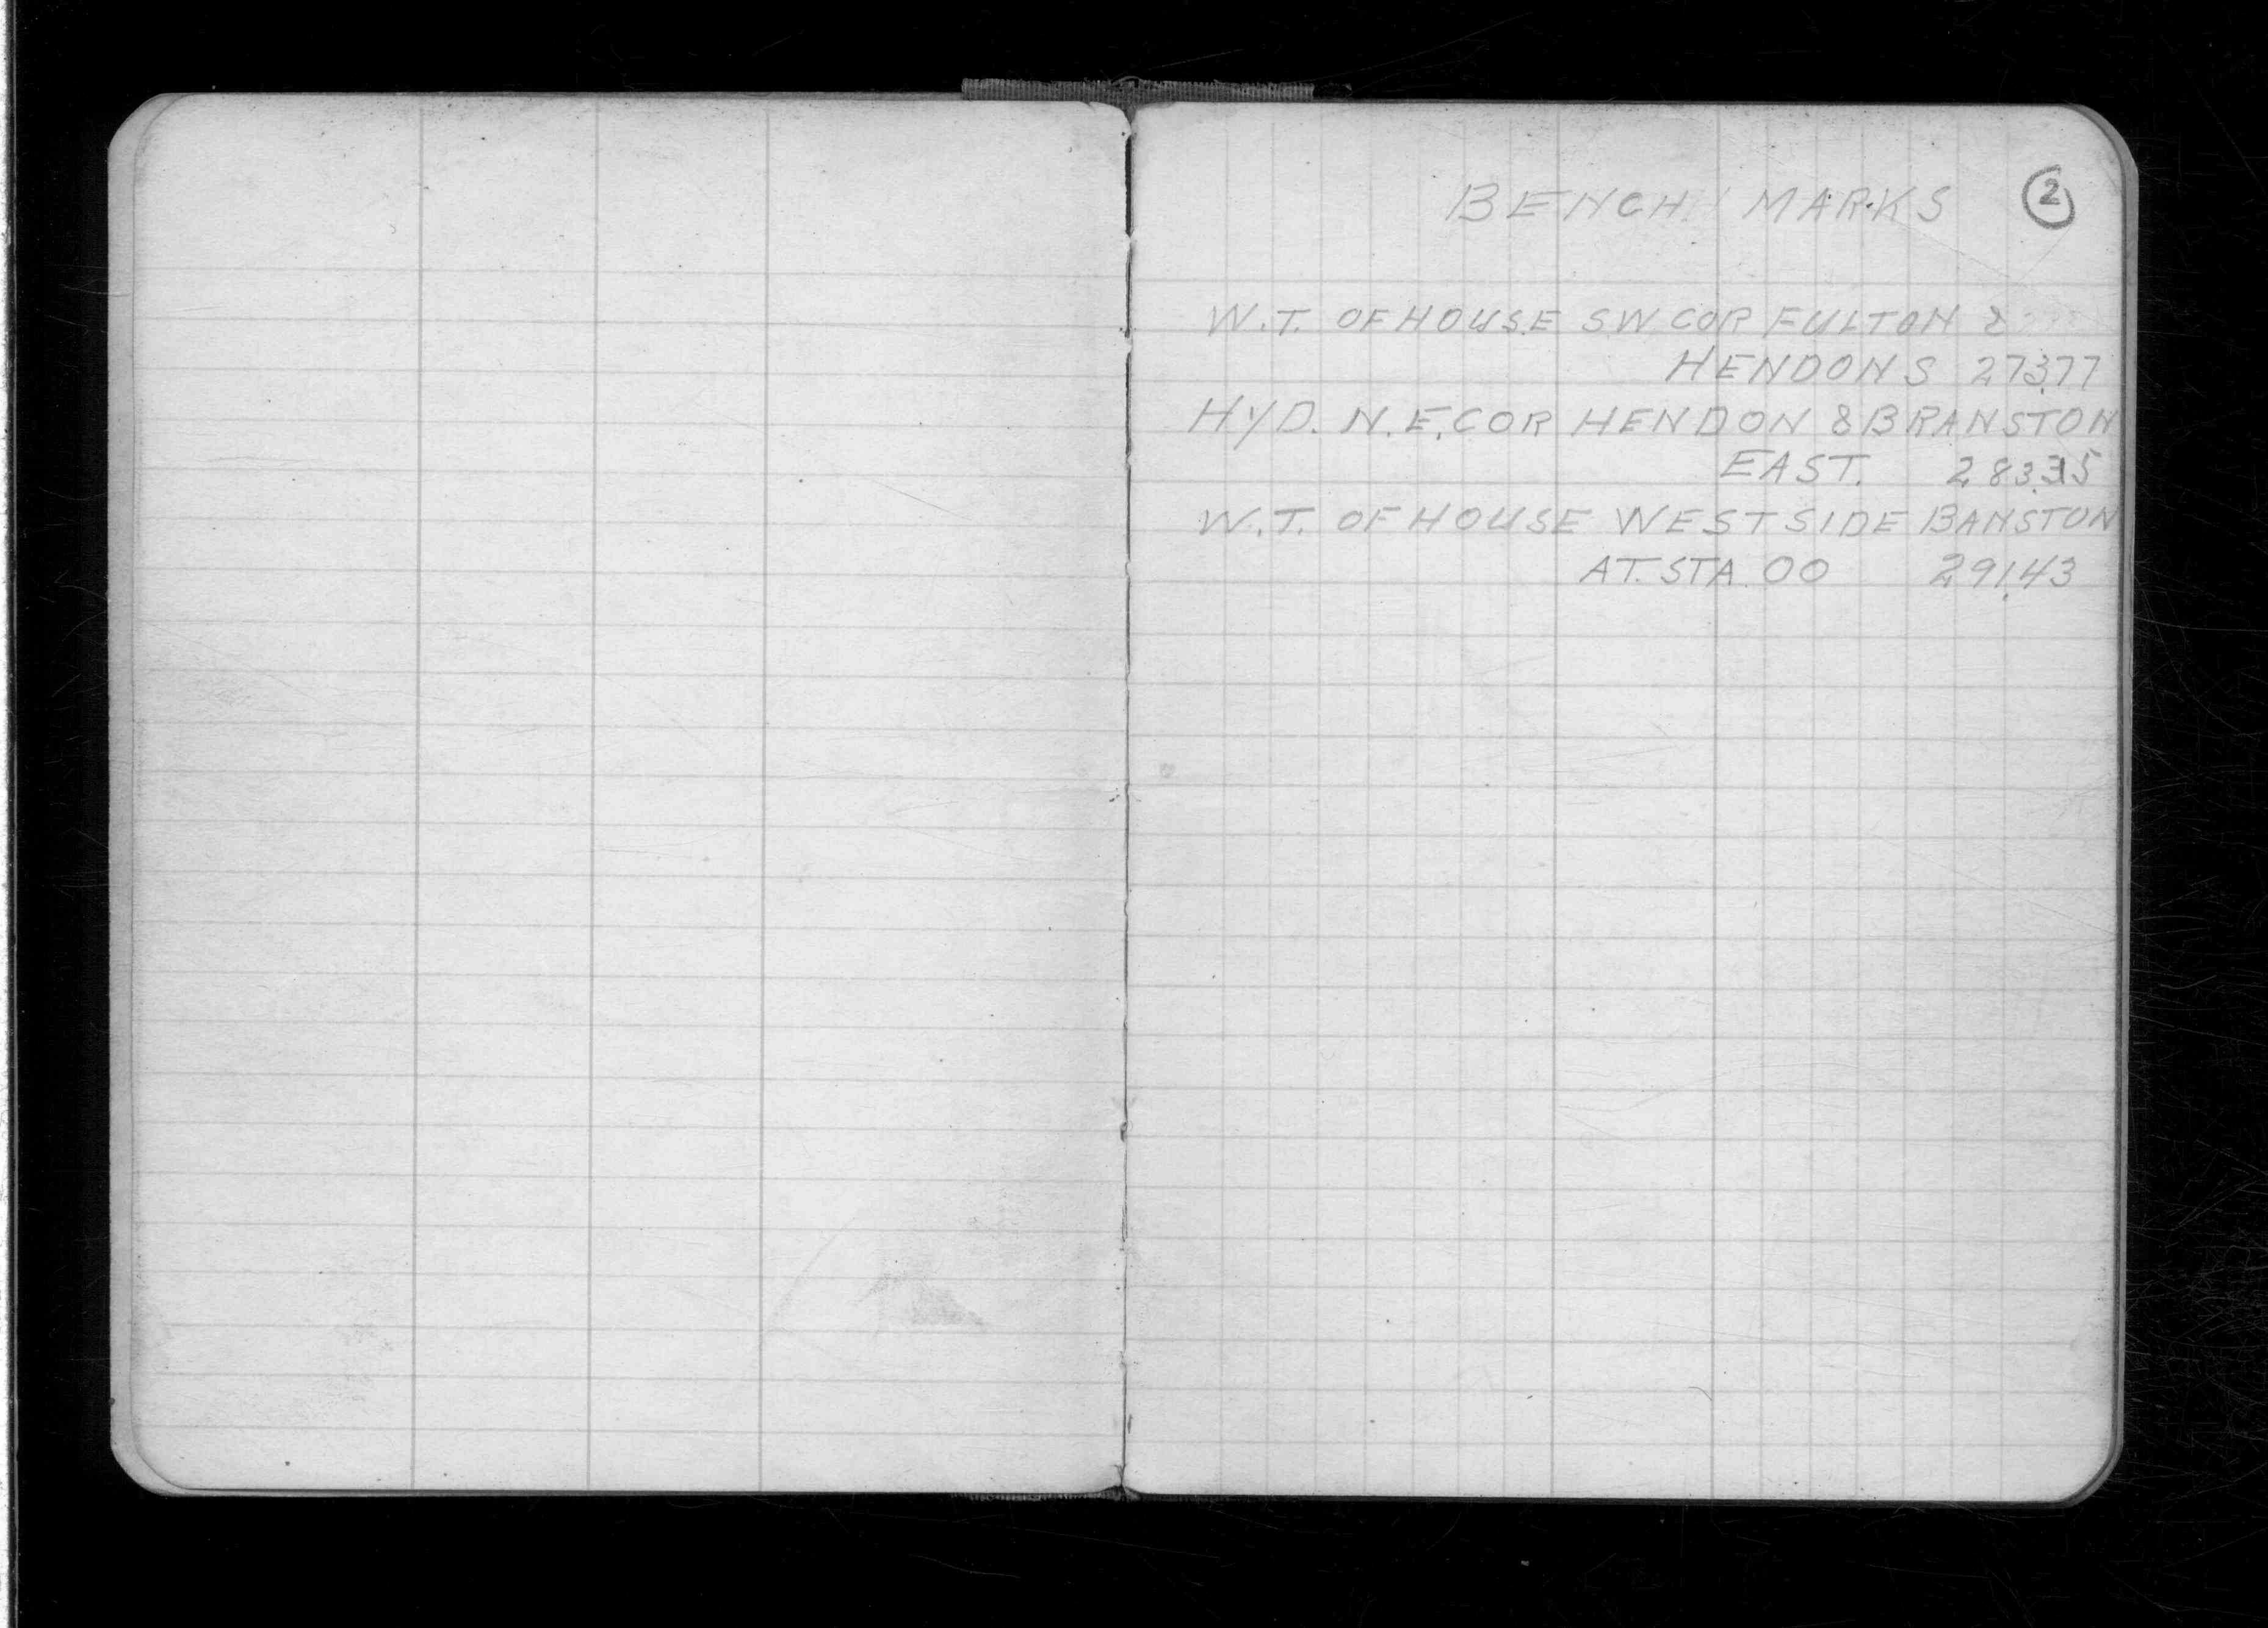 BENCH MARKS 2
W.T. OF HOUSE SW COR FULTON &
HENDON S 273.77
HYD. N.E. COR HENDON & BRANSTON
EAST. 283.35
W.T. OF HOUSE WEST SIDE BANSTON
AT. STA. 00 291.43